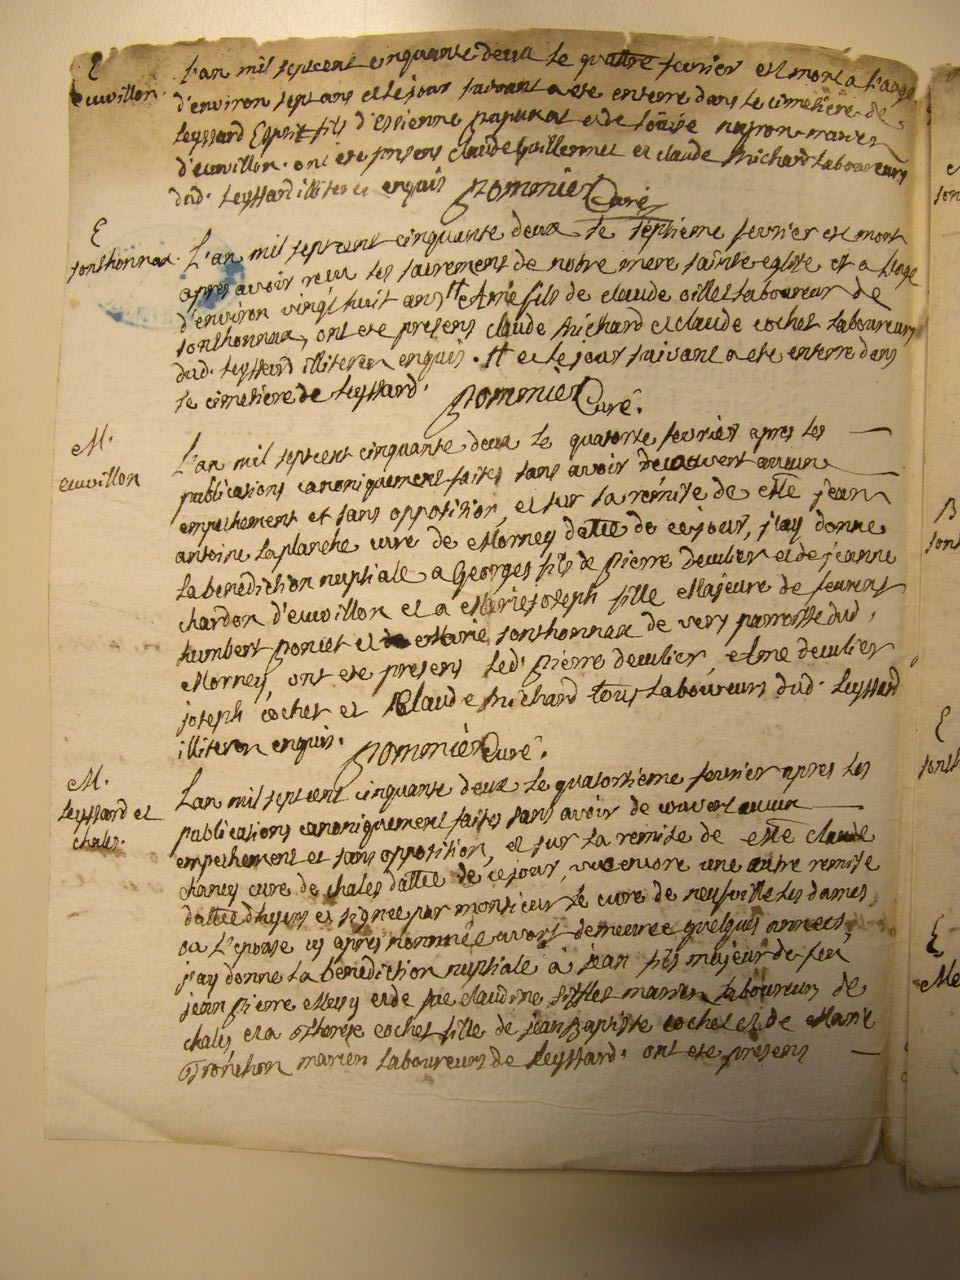 E
L'an mil septcent cinquante deux le quattre fevrier est mort a l'aage
euvvillon.
d'environ sept ans et le jour suivant a ete enterré dans le cimetiere de
Leyssard Esprit fils d'Estienne papurat et de mariés
d'euvvillon. ont ete presens Claude Guillermet et claude Michard Laboureurs
dud. Leyssard illiteres enquis Pommier Curé
E
L'an mil septcent cinquante deux le septieme fevrier est mort
sonthonnax.
apres avoir reçu les sacrements de notre mere sainte eglise et a l'age
d'environ vingt huit ans # Aimé fils de claude oillet Laboureur de
sonthonnax, ont ete presens claude Michard et claude cochet Laboureurs
dud. Leyssard illiteres enquis. # et le jour suivant a ete enterré dans
le cimetiere de Leyssard. Pommier Curé.
M.
L'an mil septcent cinquante deux le quatorse fevrier apres les
euvvillon
publications canoniquement faites sans avoir decouvert aucun
empechement et sans opposition, et sur la remise de Mre jean
antoine Laplanche curé de Mornay dattée de ce jour, j'ay donné
la benediction nuptiale a Georges fils de Pierre decuvlier et de jeanne
chardon d'euvvillon et a Mariejoseph fille Majeure de feu
humbert poncet et de Marie sonthonnax de very parroisse dud.
Mornay, ont ete presens led. Pierre decuvlier, Aimé decuvlier
joseph cochet et Claude Michard tous Laboureurs dud. Leyssard
illiteres enquis. Pommier Curé.
M.
L'an mil septcent cinquante deux le quatorsieme fevrier apres les
Leyssard et
publications canoniquement faites sans avoir decouvert aucun
chales.
empechement et sans opposition, et sur la remise de Mre claude
chaney curé de chales dattée de ce jour, vu encore une autre remise
dattée d'hyer et signée par monsieur le curé de neufville les dames
ou L'epouse cy apres nommée avoit demeuree quelques années,
j'ay donné la benediction nuptiale a jean fils majeur de feu
jean pierre Mery et de claudine mariés Laboureurs de
chales et a Therese cochet fille de jean Baptiste cochet et de Marie
Tronchon mariés Laboureurs de Leyssard. ont ete presens